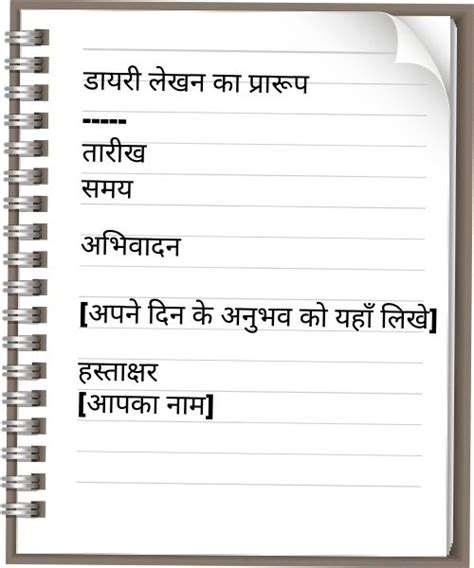 डायरी लेखन का प्रारूप
-----
तारीख
समय
अभिवादन
[अपने दिन के अनुभव को यहाँ लिखे]
हस्ताक्षर
[आपका नाम]